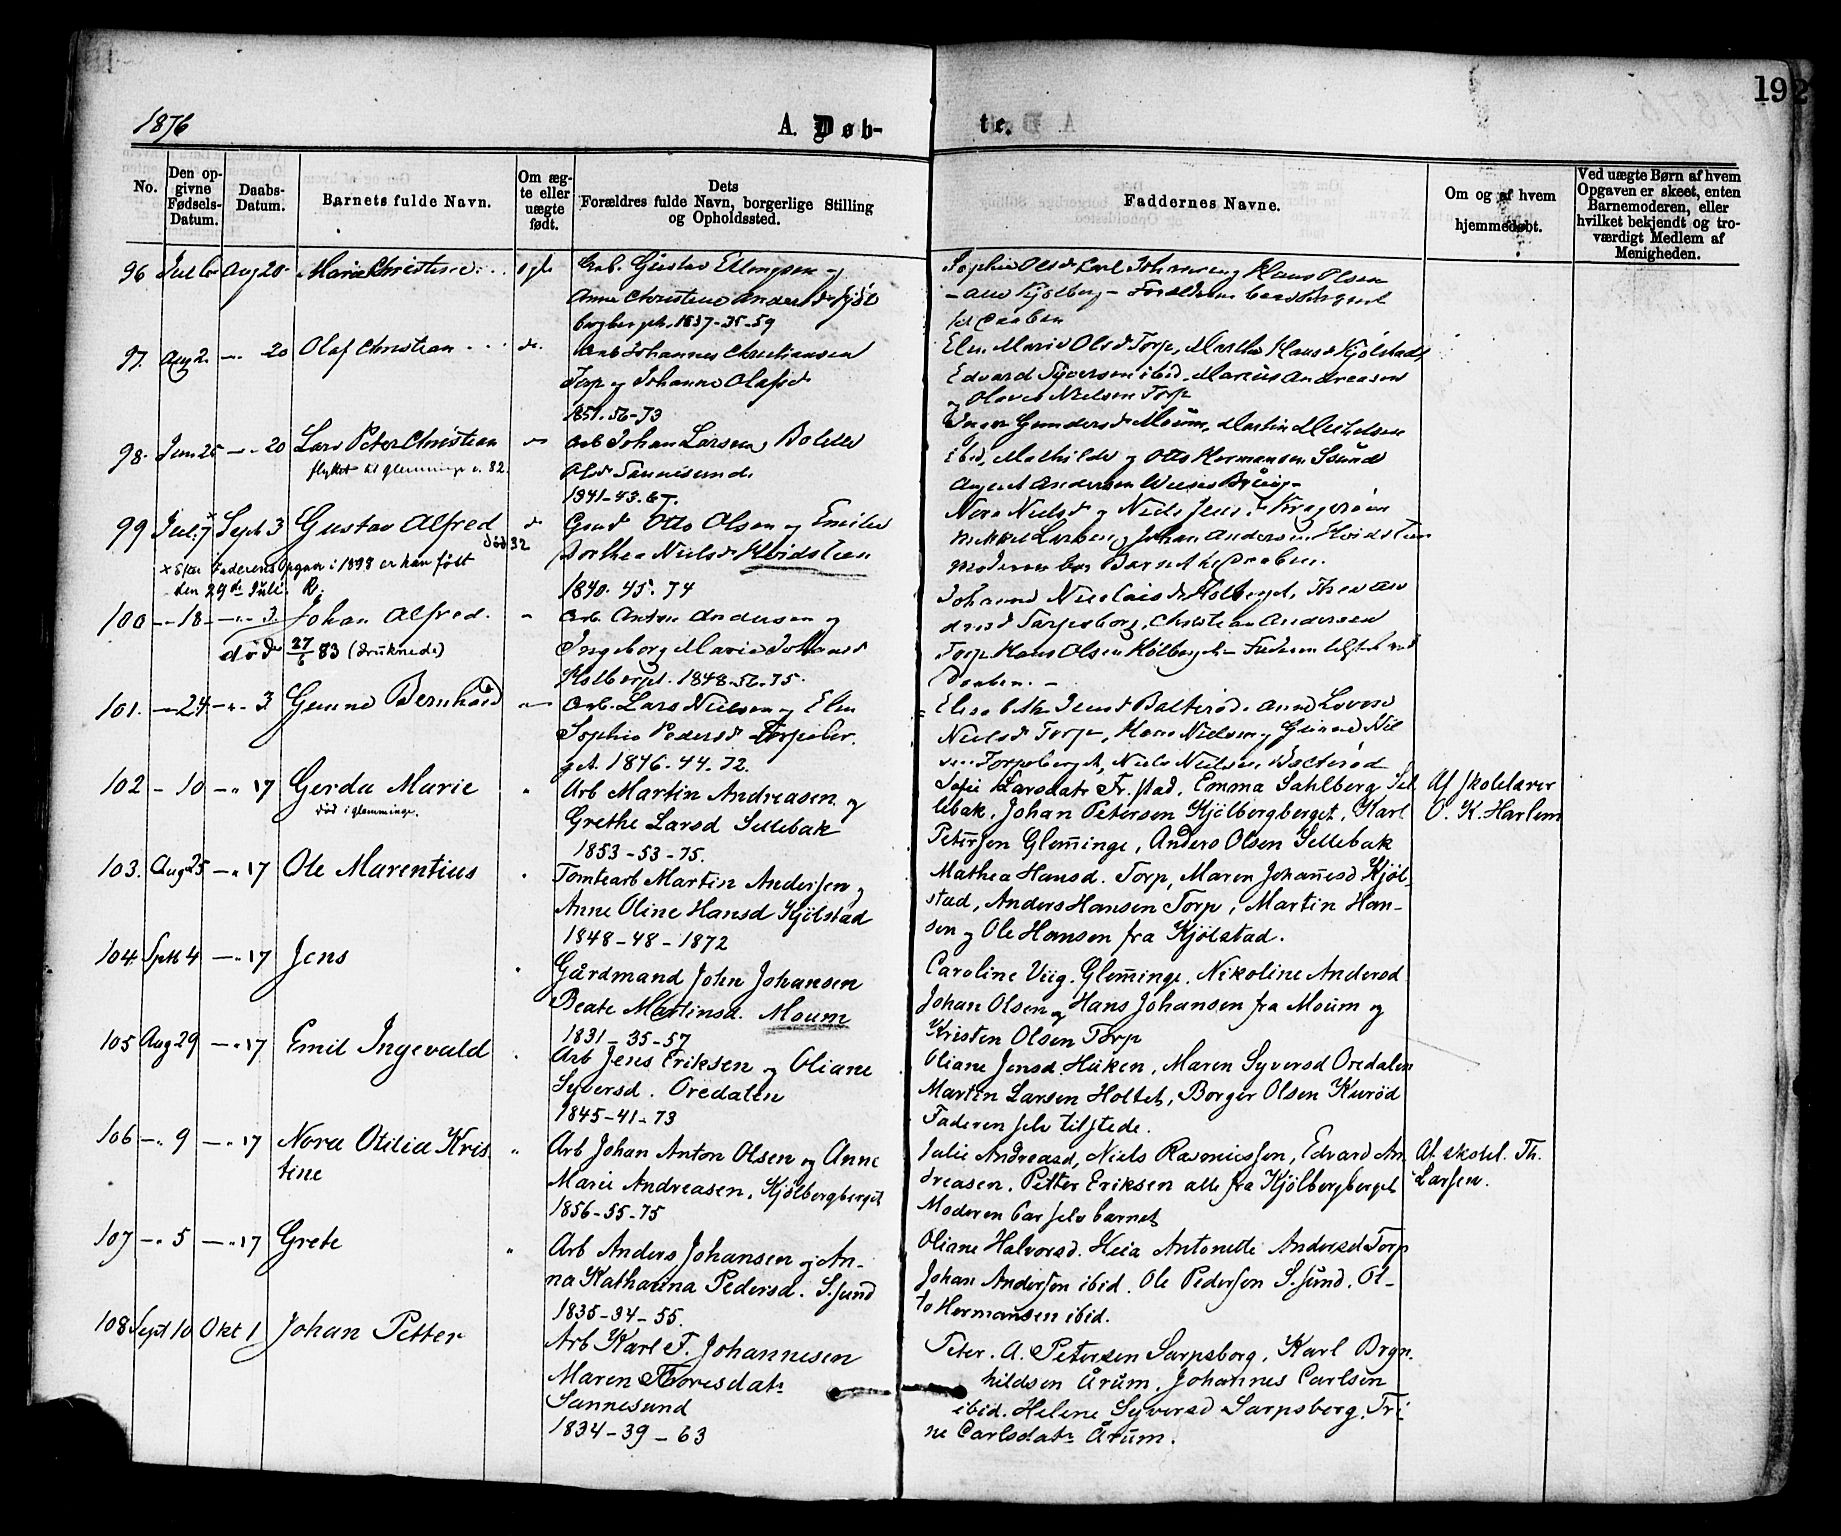 192
1876
A. Døb-
te.
No.
Den op-
givne
Fødsels-
Datum.
Daabs-
Datum.
Barnets fulde Navn.
Om æg-
te eller
uægte
født.
Dets
Forældres fulde Navn, borgerlige Stilling
og Opholdssted.
Faddernes Navne.
Om og af hvem
hjemmedøbt.
Ved uægte Børn af hvem
Opgaven er skeet, enten
Barnemoderen, eller
hvilket bekjendt og tro-
værdigt Medlem af
Menigheden.
96 Aug 20 Marie Christine
Arb. Gustav Ellingsen og
Anne Christine
1837-35-59
Sophie Olsd Carl Johansen og Hans Olsen
97. Aug 2. 20 Olaf Christian
Arb Johannes Christiansen
Torp og Johanne Olafsd
1851-56-73
Elen Marie Olsd Torp, Martha Hansd Kjølstad,
Edvard Syversen ibid. Marius Andreasen
og Olaves Nielsen Torp
98. Juni 25 20 Lars Peter Christian
flyttet til Glemminge n. 82.
Arb Johan Larsen
Olsd Sannesund
1841-43-67.
Gundersd Moum, Martin Mikkelsen
Ibid, Mathilde og Otto Hermansen Ssund
99 Jul. 7 Sept 3 Gustav Alfred
død 32
x Efter Faderens Opgave i 1898 er han født
den 29de Juli. R.
Gmd Otto Olsen og Emilie
Dorthea Nielsd Hvidsteen
1840. 45. 74
Nora Nielsd og Niels Jens
Mikkel Larsen og Johan Andersen Hvidsteen
Moderen bar Barnet til Daaben.
100 18 3. Johan Alfred.
døde 27/6 83 (druknede)
Arb. Anton Andersen og
Ingeborg Marie Johansd
Kolbergt. 1848-56-75.
Johanne Nicolaisd
Sarpsborg, Christian Andersen
Torp Hans Olsen Kolberget Faderen tilstede ved
Daaben.
101. 24 3 Gunne Bernhard
Arb. Lars Nielsen og Elen
Sophie Pedersd Torpeber
get. 1846. 44. 72.
Elisabeth Jensd Balterød. Anne Lovise
Nielsd Torp, Hans Nielsen og Gunne Niel
sen Torpeberget, Niels Nielsen Balterød
102 - 10 17 Gerda Marie
død i Glemminge.
Arb Martin Andreasen og
Grethe Larsd Sellebak
1853-53-75.
Sofie Larsdatr Fr.stad, Emma Sahlberg Sel
lebak, Johan Petersen Kjölbergberget, Karl
Petersen Glem̄inge, Anders Olsen Sellebak
Af Skolelærer
O. K. Harlem
103. Aug 25 17 Ole Marentius
Tomtearb Martin Andersen og
Anne Oline Hansd Kjölstad
1848-48-1872
Mathea Hansd. Torp, Maren Johan̄esd Kjöl-
stad, Anders Hansen Torp, Martin Han-
sen og Ole Hansen fra Kjölstad.
104 Septb 4 17 Jens
Gårdmand John Johansen
Beate Martinsd. Moum
1831-35-57
Caroline Viig. Glem̄inge. Nikoline Andersd
Johan Olsen og Hans Johansen fra Moum og
Kristen Olsen Torp
105 Aug 29 17 Emil Ingevald
Arb Jens Eriksen og Oliane
Syversd. Oredalen
1845-41-73
Oliane Jensd. Huken, Maren Syversd Oredalen
Martin Larsen Holtet, Borger Olsen Kurød
Faderen selv tilstede.
106 9 17 Nora Otilia Kris
tine
Arb Johan Anton Olsen og Anne
Marie Andreasen. Kjölbergberget
1856-55-75
Julie Andreasd, Niels Rasmussen, Edvard An
dreasen. Petter Eriksen alle fra Kjölbergberget
Moderen bar selv barnet
Af skolel. Th.
Larsen.
107 5 17 Grete
Arb Anders Johansen og An-
na Katharina Pedersd. S.sund
1835-34-55.
Oliane Halvorsd. Heia Antonette Andersd Torp
Johan Andersen ibid. Ole Pedersen S.sund. Ot-
to Hermansen ibid.
108 Sept 10 Okt 1 Johan Petter
Arb Karl F. Johannesen
Maren Toresdatr
Sannesund
1834-39-63
Peter. A. Petersen Sarpsborg, Karl Bryn-
hildsen Årum. Johannes Carlsen
ibid. Helene Syversd Sarpsborg. Tri
ne Carlsdatr Årum.